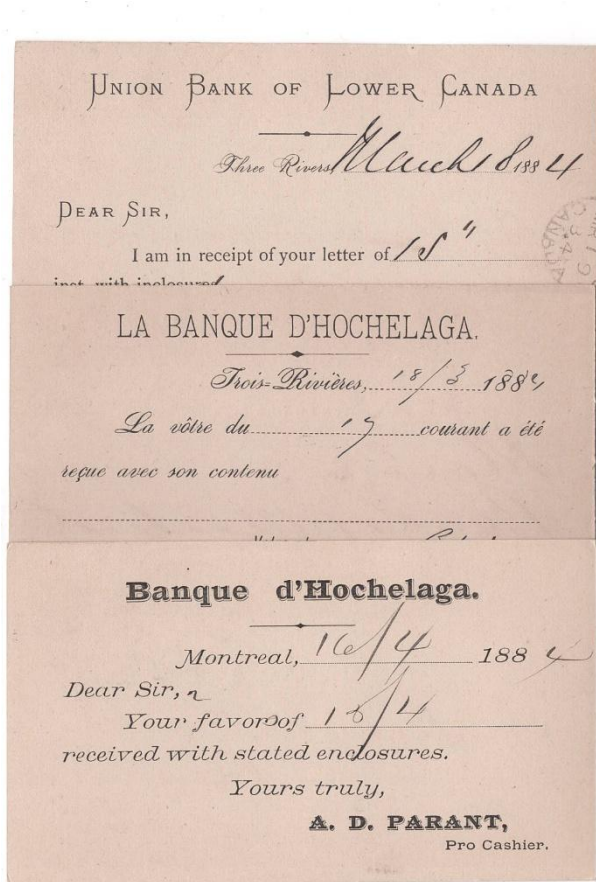 UNION BANK OF LOWER CANADA
Three Rivers March 18 1884
DEAR SIR,
I am in receipt of your letter of 15"
inst. with inclosures
LA BANQUE D'HOCHELAGA.
Trois=Rivières, 18/3 1884
La vôtre du 17 courant a été
reçue avec son contenu
Banque d'Hochelaga.
Montreal, 16/4 1884
Dear Sir,
Your favor of 15/4
received with stated enclosures.
Yours truly,
A. D. PARANT,
Pro Cashier.